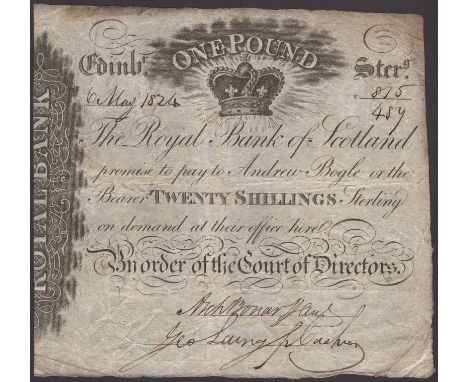 ROYAL BANK
ONE POUND
Edinbr. Sterg
6 May 1824 815
487
The Royal Bank of Scotland
promise to pay to Andrew Bogle or the
Bearer TWENTY SHILLINGS Sterling
on demand at their office here
By order of the Court of Directors.
Archd Bonar
Geo Laing